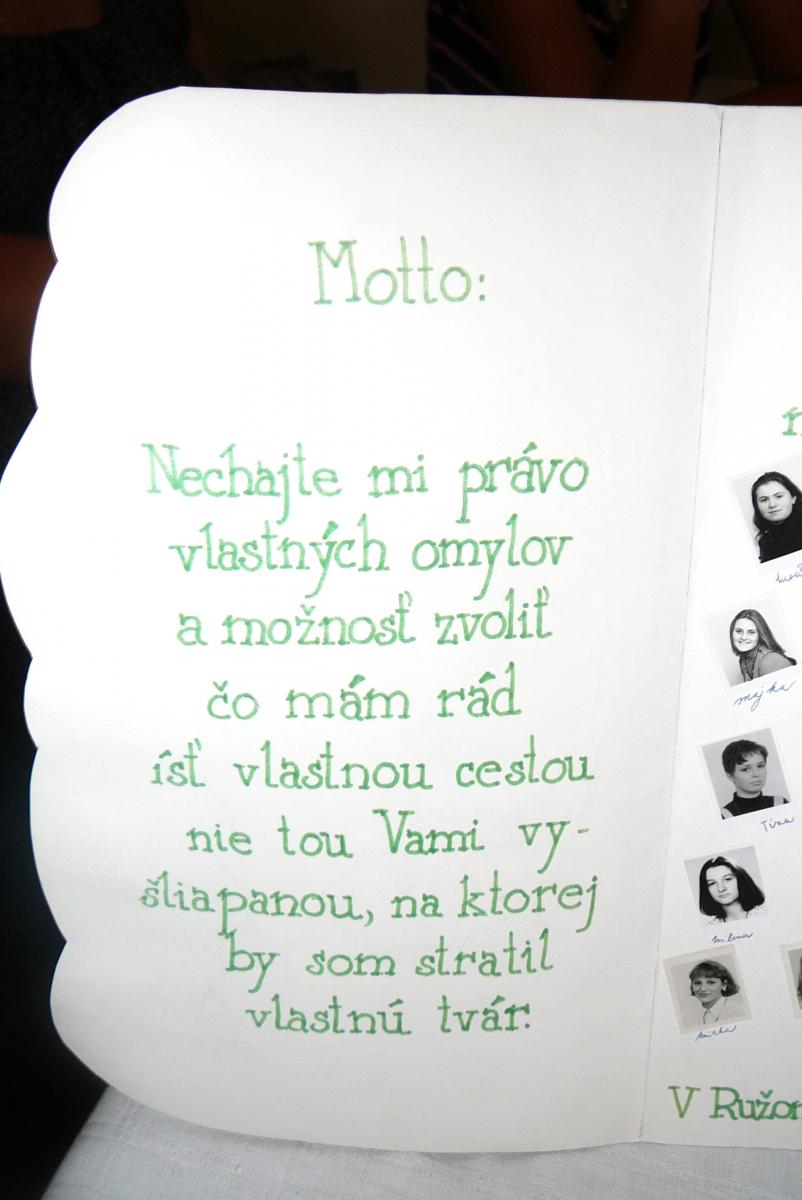 Motto:
Nechajte mi právo
vlastných omylov
a možnosť zvoliť
čo mám rád
ísť vlastnou cestou
nie tou Vami vy-
šliapanou, na ktorej
by som stratil
vlastnú tvár.
majka
Tina
milena
V Ružom